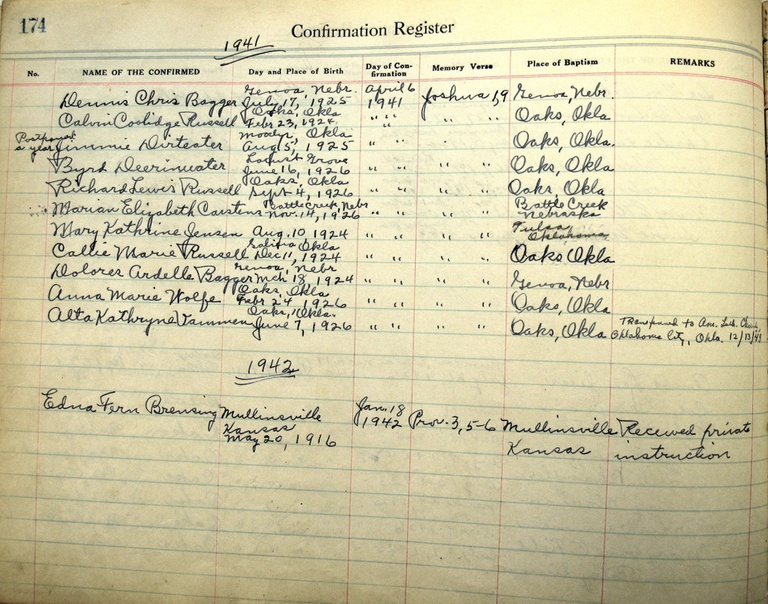 174
Confirmation Register
1941
No. NAME OF THE CONFIRMED Day and Place of Birth Day of Confirmation Memory Verse Place of Baptism REMARKS
Genoa, Nebr. April 6
Dennis Chris Bagger July 17, 1925 1941 Joshua 1,9 Genoa, Nebr.
Oaks, Okla
Calvin Coolidge Russell Febr 23, 1924 " " " " Oaks, Okla
Postponed , Okla
a year Jimmie Dirteater Aug 5, 1925 " " " " Oaks, Okla.
Locust Grove
Byrd Deerinwater June 16, 1926 " " " " Oaks, Okla
Oaks, Okla
Richard Lewis Russell Sept 4, 1926 " " " " Oaks, Okla
Battle Creek, Nebr Battle Creek
Marian Elizabeth Carstens Nov. 14, 1926 " " " " Nebraska
Mary Kathrine Jensen Aug. 10 1924 " " " " Tulsa
Oklahoma
Salina Okla
Callie Marie Russell Dec 11, 1924 " " " " Oaks Okla
Genoa, Nebr
Dolores Ardelle Bagger Mch 18, 1924 " " " " Genoa, Nebr
Oaks, Okla
Anna Marie Wolfe Febr 24 1926 " " " " Oaks, Okla
Oaks, Okla.
Alta Kathryne Tammen June 7, 1926 " " " " Oaks, Okla Transferred to Am. Luth. Church,
Oklahoma City, Okla. 12/13/41
1942
Edna Fern Brensing Mullinsville Jan. 18
1942 Prov. 3, 5-6 Mullinsville Received private
Kansas Kansas instruction
May 20, 1916